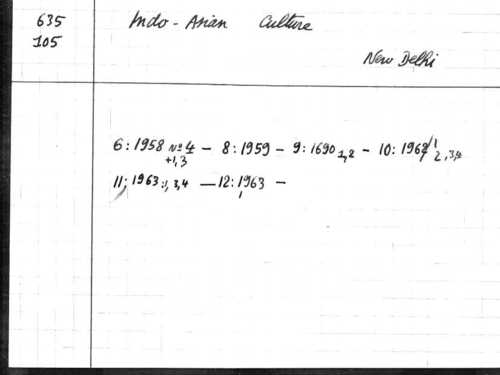 635 Indo-Asian Culture
105
New Delhi
6: 1958 No 4 - 8: 1959 - 9: 1690 1,2 - 10: 1962/1
+1,3 2,3,4
11: 1963:1, 3,4 - 12: 1963 -
1